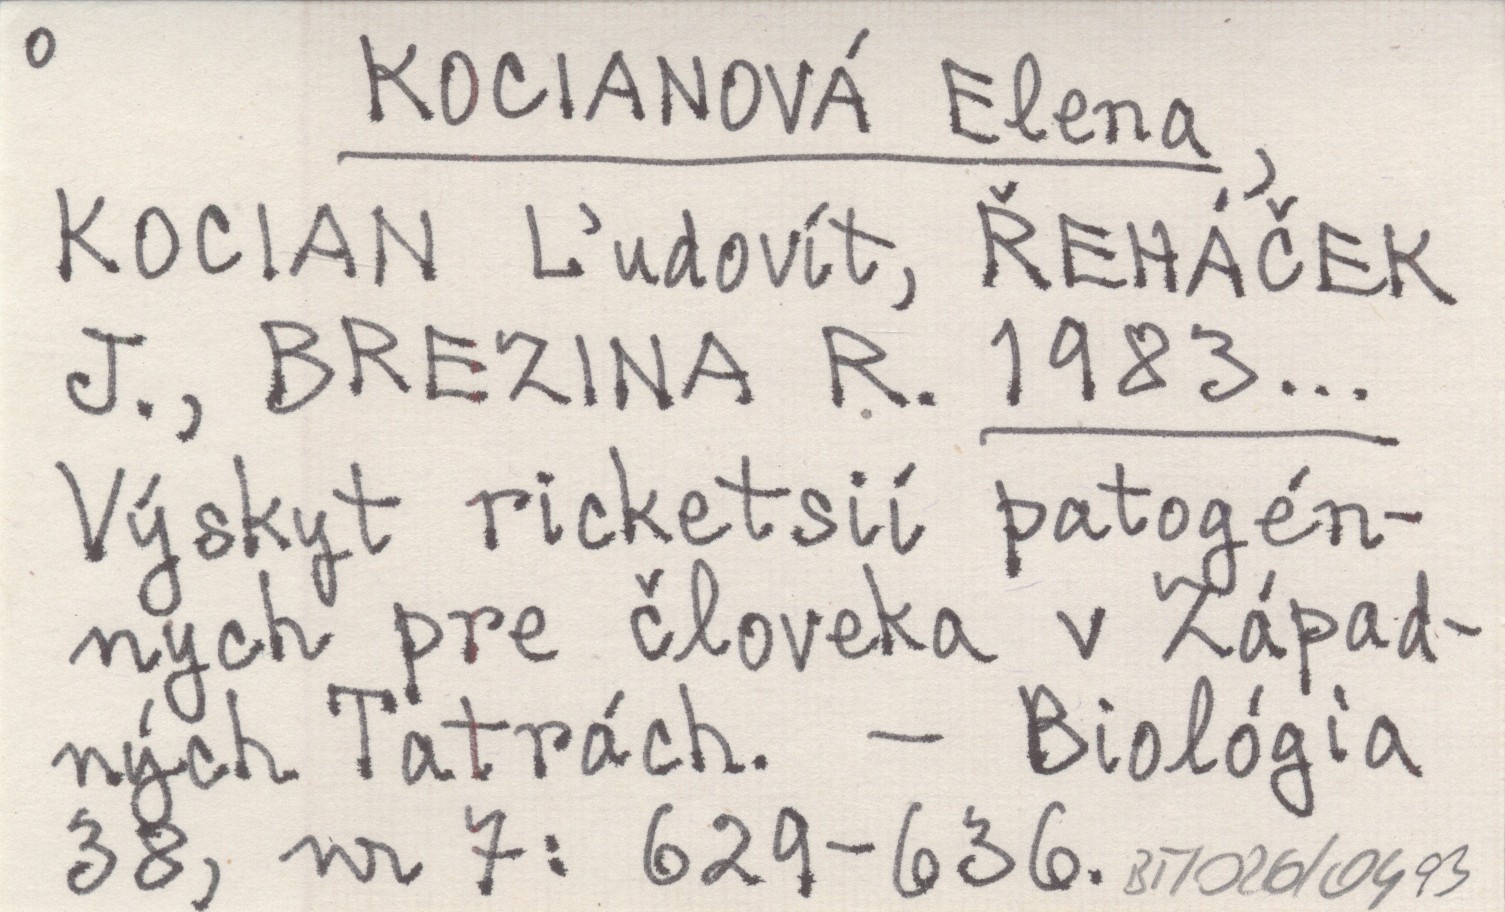 o
KOCIANOVÁ Elena,
KOCIAN Ľudovít, ŘEHÁČEK
J., BREZINA R. 1983...
Výskyt ricketsií patogén-
nych pre človeka v Západ-
ných Tatrách. – Biológia
38, nr 7: 629–636.